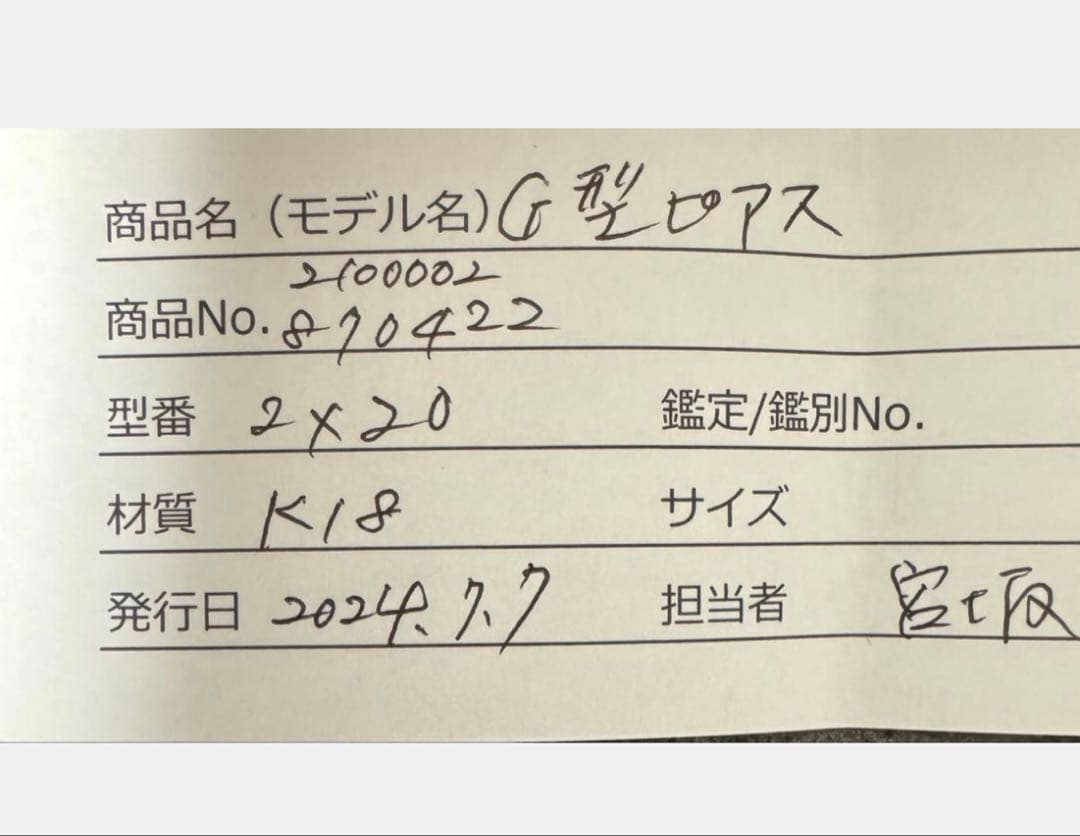 商品名（モデル名）G型ピアス
2100002
商品No. 870422
型番 2×20 鑑定/鑑別No.
材質 K18 サイズ
発行日 2024.7.7 担当者